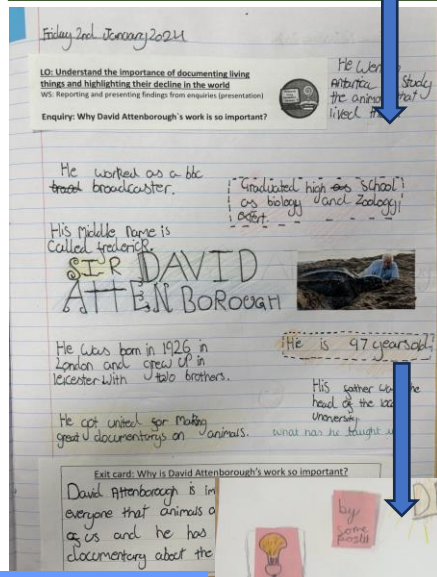 Friday 2nd January 2024
LO: Understand the importance of documenting living
things and highlighting their decline in the world
WS: Reporting and presenting findings from enquiries (presentation)
Enquiry: Why David Attenborough's work is so important?
He Wen
Antartica Study
the anima that
lived
He worked as a bbc
broadcaster.
Graduated high School
as biology and Zoology
extert.
His Middle name is
Called frederick.
SIR DAVID
ATTENBOROUGH
He was born in 1926 in
London and grew up in
leicester with two brothers.
He is 97 years old.
His father was the
head of the
university.
He got united for Making
great documentarys on animals.
what has he taught
Exit card: Why is David Attenborough's work so important?
David Attenborough is im
everyone that animals a
as us and he has
documentary about the
by
some